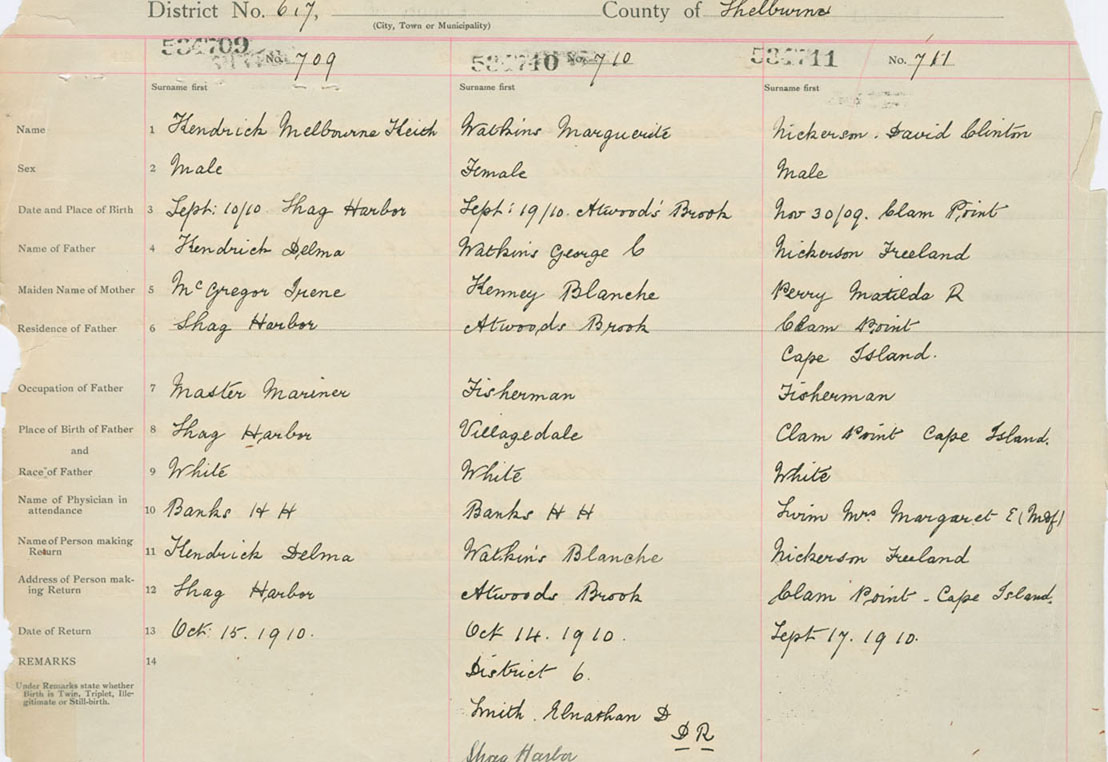 District No. 617, County of Shelburne
(City, Town or Municipality)
534709 No. 709 534710 No. 710 534711 No. 711
Surname first Surname first Surname first
Name 1 Kendrick Melbourne Keith Watkins Marguerite Nickerson. David Clinton
Sex 2 Male Female Male
Date and Place of Birth 3 Sept: 10/10. Shag Harbor Sept: 19/10. Atwood's Brook Nov 30/09. Clam Point
Name of Father 4 Kendrick Delma Watkins George C Nickerson Freeland
Maiden Name of Mother 5 McGregor Irene Kenney Blanche Perry Matilda R
Residence of Father 6 Shag Harbor Atwoods Brook Clam Point
Cape Island.
Occupation of Father 7 Master Mariner Fisherman Fisherman
Place of Birth of Father 8 Shag Harbor Villagedale Clam Point Cape Island.
and
Race of Father 9 White White White
Name of Physician in
attendance 10 Banks H H Banks H H Swim Mrs Margaret E (Mdf)
Name of Person making
Return 11 Kendrick Delma Watkins Blanche Nickerson Freeland
Address of Person mak-
ing Return 12 Shag Harbor Atwoods Brook Clam Point - Cape Island.
Date of Return 13 Oct. 15. 1910. Oct 14. 1910. Sept 17. 1910.
REMARKS 14 District 6.
Under Remarks state whether
Birth is Twin, Triplet, Ille-
gitimate or Still-birth.
Smith. Elnathan D
D R
Shag Harbor